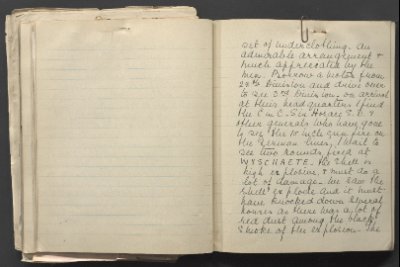 set of underclothing. An
admirable arrangement &
much appreciated by the
men. Borrow a motor from
28th Division and drive over
to see 3rd Division. On arrival
at their headquarters I find
the C in C. Sir Horace S. D. &
other generals who have gone
to see the 15 inch gun fire on
the German lines, I wait to
see two rounds fired at
WYSCHAETE. The shell is
high explosive, & must do a
lot of damage - we saw the
shell explode and it must
have knocked down several
houses as there was a lot of
red dust among the black
smoke of the explosion. The